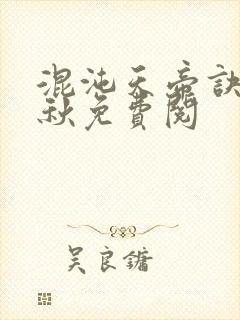 混沌天帝訣
秋免費閱
吴良鏞